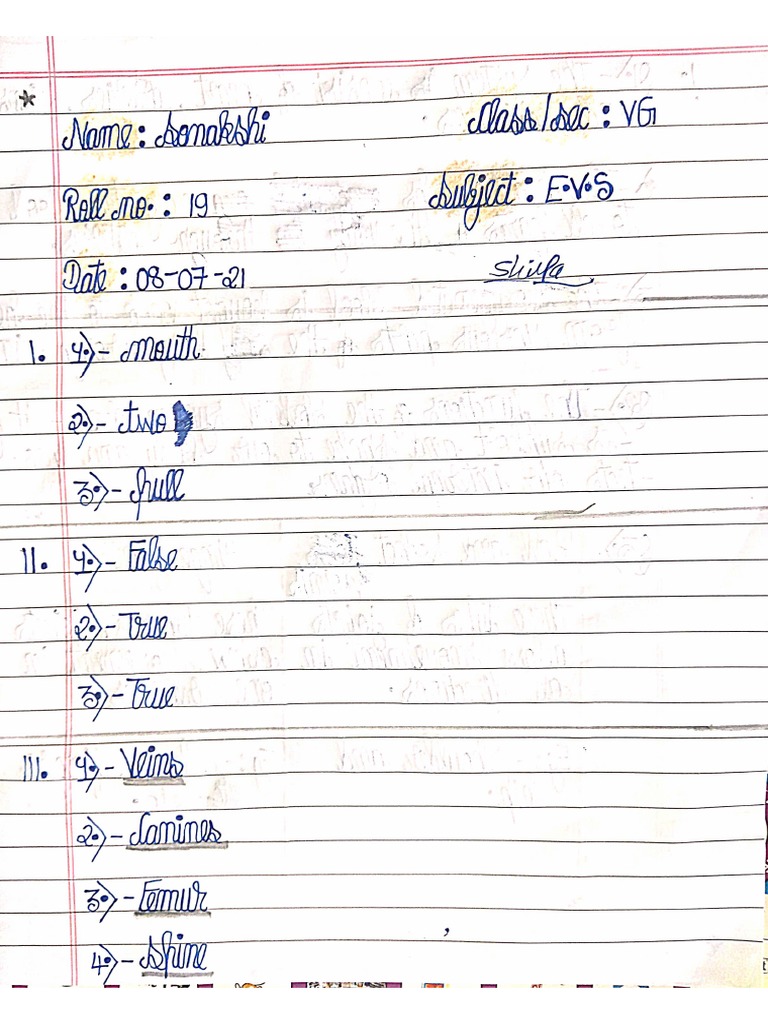 *
Name: Sonakshi Class/Sec : VG
Roll no. : 19 Subject : E.V.S
Date : 08-07-21
I. 1.)- mouth
2.)- two
3.)- full
II. 1.)- False
2.)- True
3.)- True
III. 1.)- Veins
2.)- Canines
3.)- Femur
4.)- Spine